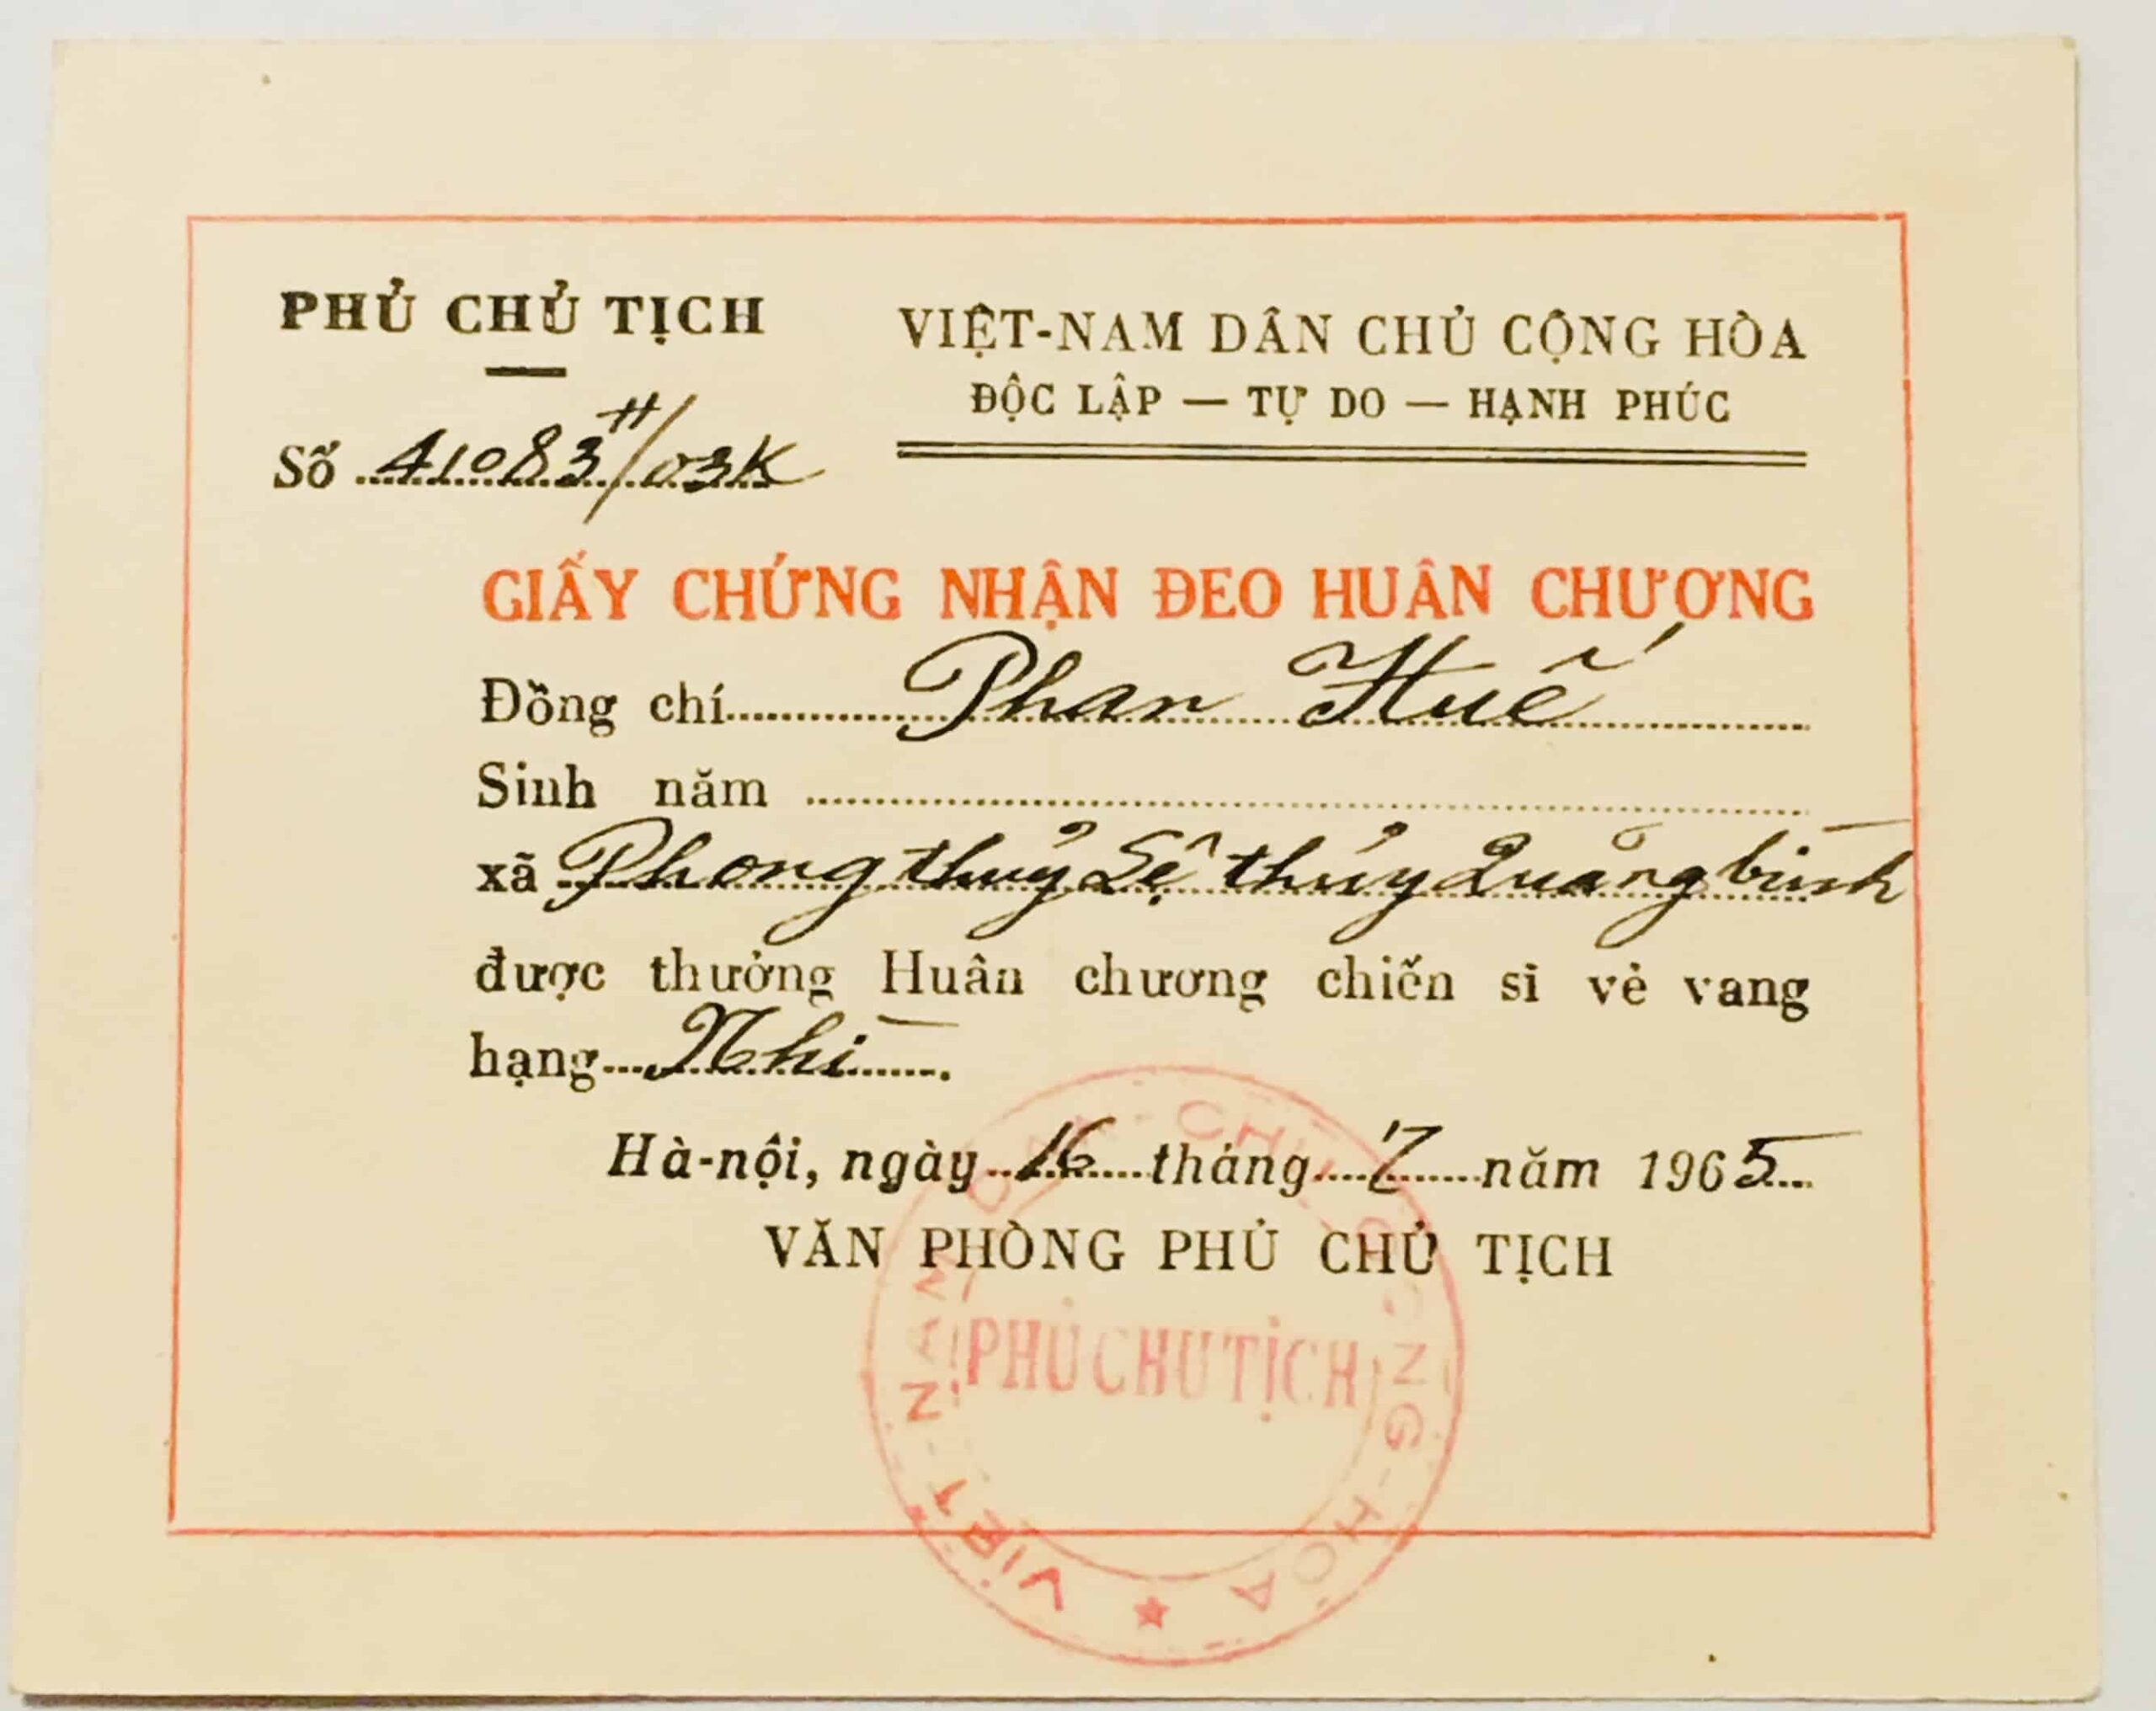 PHỦ CHỦ TỊCH
Số 41083 H/03K
VIỆT-NAM DÂN CHỦ CỘNG HÒA
ĐỘC LẬP — TỰ DO — HẠNH PHÚC
GIẤY CHỨNG NHẬN ĐEO HUÂN CHƯƠNG
Đồng chí Phan Huế
Sinh năm
xã Phong thủy Lệ thủy Quảng bình
được thưởng Huân chương chiến sĩ vẻ vang
hạng Nhì.
Hà-nội, ngày 16 tháng 7 năm 1965
VĂN PHÒNG PHỦ CHỦ TỊCH
PHỦ CHỦ TỊCH
VIỆT-NAM-DÂN-CHỦ-CỘNG-HÒA